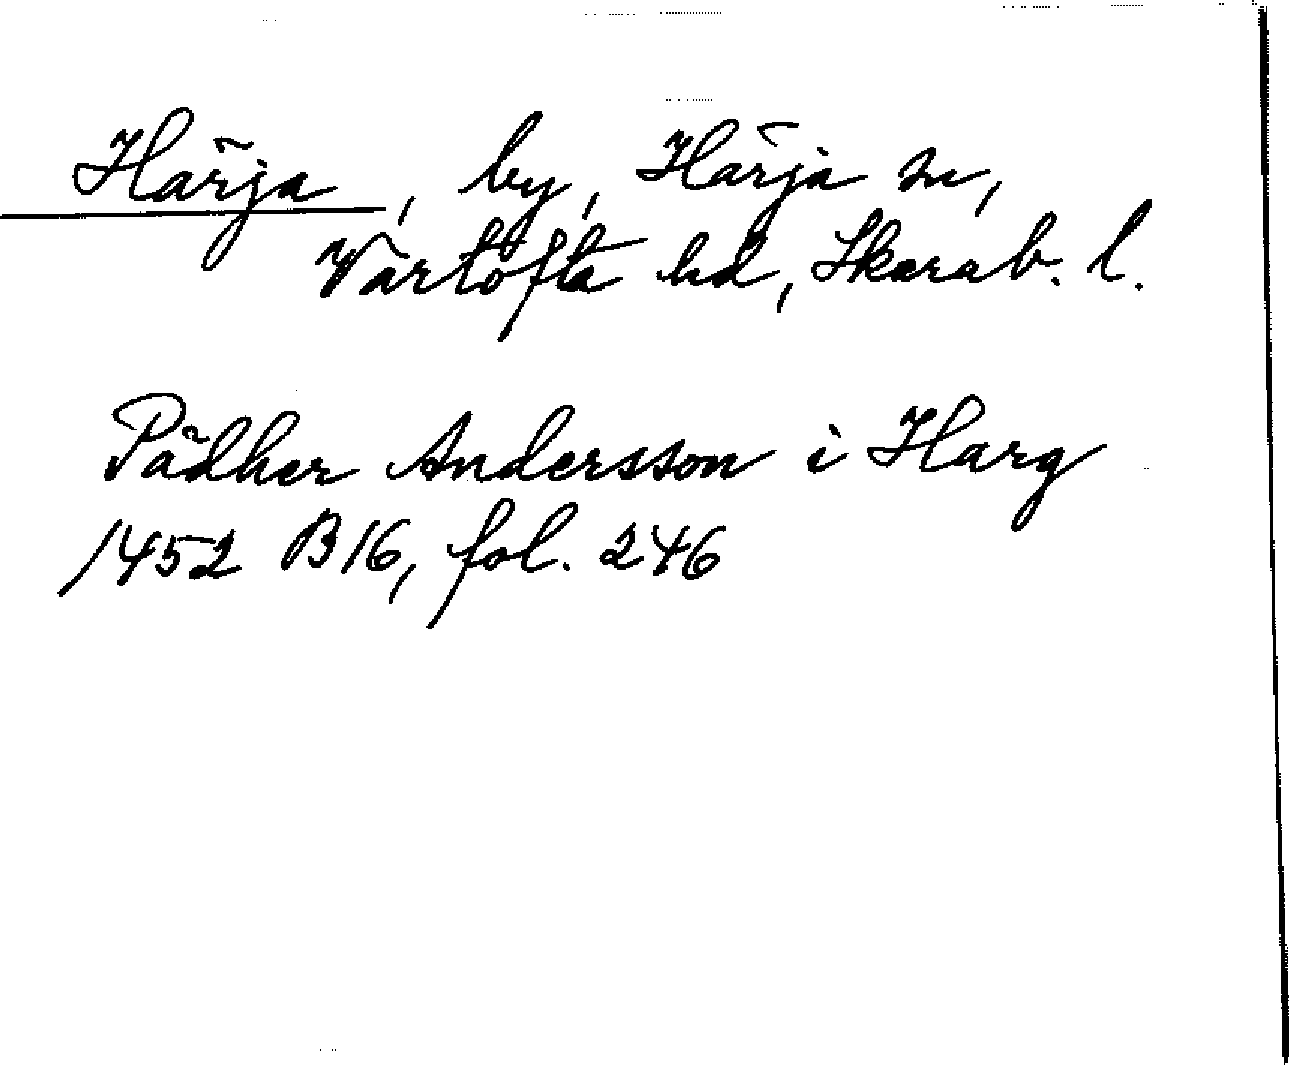 Härja, by, Härja sn,
Vartofta hd, Skarab. l.
Pådher Andersson i Harg
1452 B16, fol. 246